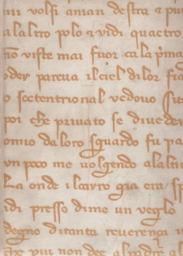 mi volsi a man destra e pu
alaltro polo e vidi quattro
nõ viste mai fuor ca la p̃ma
oder pareua ilciel di lor fia
o scetentrional vedouo sit
poi che priuato se di ueder
omio da loro sguardo fu pa
un poco me uolgendo alalt
La onde ilcarro gia era sp
idi presso dime un veglo
degno ditanta reuerenza in
piu non dee